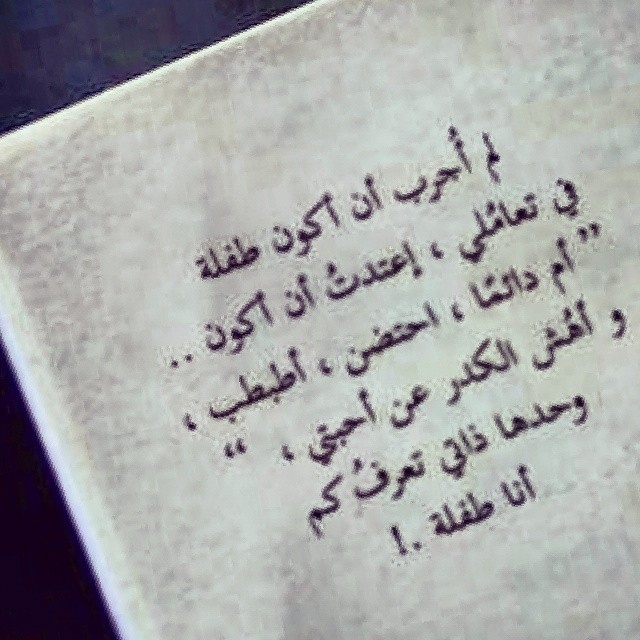 لم أجرب أن أكون طفلة
في تعاملي ، إعتدتُ أن أكون ..
" أم دائمًا ، احتضن ، أطبطب ،
و أنفش الكدر عن أحبتي ، "
وحدها ذاتي تعرفُ كم
أنا طفلة .!